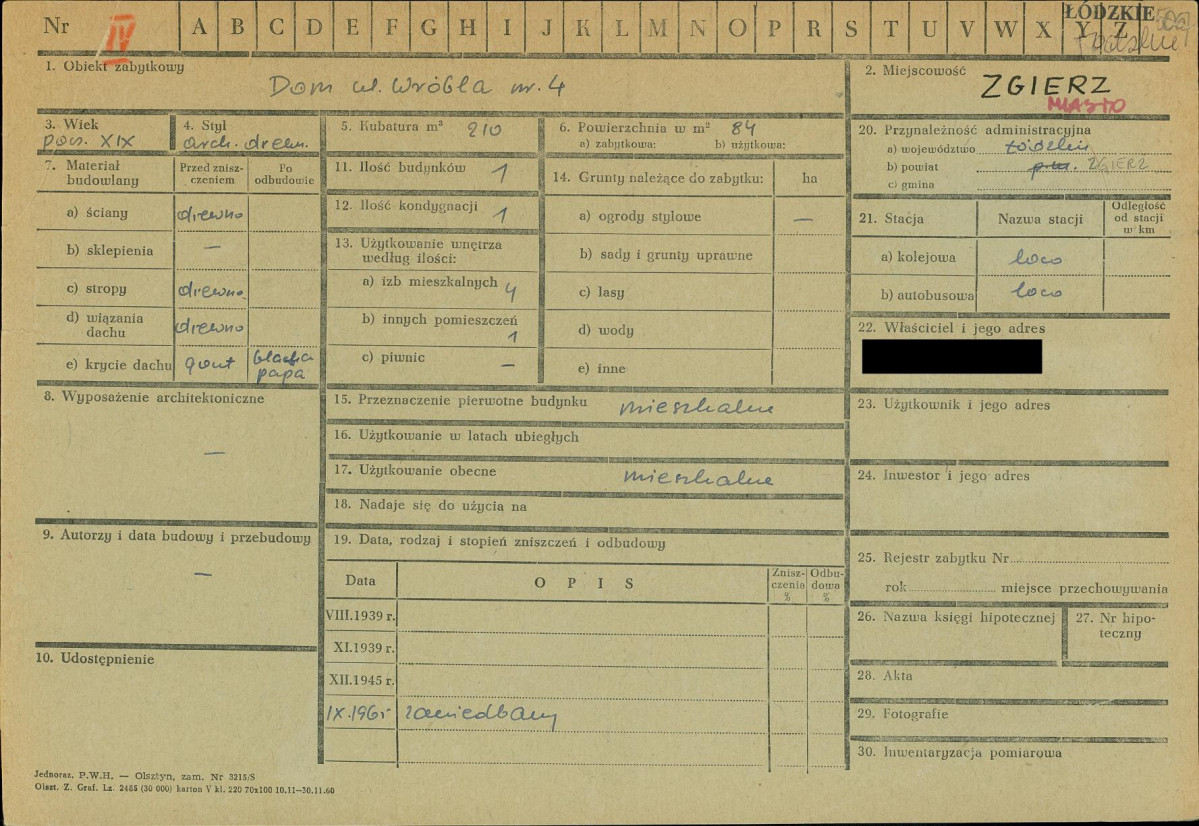 Nr IV A B C D E F G H I J K L M N O P R S T U V W X Y Z ŁÓDZKIE
1. Obiekt zabytkowy
Dom ul. Wróbla nr. 4
2. Miejscowość
ZGIERZ
MIASTO
3. Wiek
pocz. XIX
4. Styl
arch. drewn.
5. Kubatura m³ 210
6. Powierzchnia w m² 84
a) zabytkowa: b) użytkowa:
7. Materiał budowlany
Przed znisz-
czeniem
Po
odbudowie
a) ściany drewno
b) sklepienia —
c) stropy drewno
d) wiązania
dachu drewno
e) krycie dachu gont blacha
papa
8. Wyposażenie architektoniczne
—
9. Autorzy i data budowy i przebudowy
—
10. Udostępnienie
11. Ilość budynków 1
12. Ilość kondygnacji 1
13. Użytkowanie wnętrza
według ilości:
a) izb mieszkalnych 4
b) innych pomieszczeń
1
c) piwnic —
14. Grunty należące do zabytku: ha
a) ogrody stylowe —
b) sady i grunty uprawne
c) lasy
d) wody
e) inne
15. Przeznaczenie pierwotne budynku mieszkalne
16. Użytkowanie w latach ubiegłych
17. Użytkowanie obecne mieszkalne
18. Nadaje się do użycia na
19. Data, rodzaj i stopień zniszczeń i odbudowy
Data OPIS Znisz-
czenia
% Odbu-
dowa
%
VIII.1939 r.
XI.1939 r.
XII.1945 r.
IX.1965 zaniedbany
20. Przynależność administracyjna
a) województwo łódzkie
b) powiat ZGIERZ
c) gmina
21. Stacja Nazwa stacji Odległość
od stacji
w km
a) kolejowa loco
b) autobusowa loco
22. Właściciel i jego adres
23. Użytkownik i jego adres
24. Inwestor i jego adres
25. Rejestr zabytku Nr
rok miejsce przechowywania
26. Nazwa księgi hipotecznej
27. Nr hipo-
teczny
28. Akta
29. Fotografie
30. Inwentaryzacja pomiarowa
Jednoraz. P.W.H. — Olsztyn, zam. Nr 3215/S
Olszt. Z. Graf. Lz. 2485 (30 000) karton V kl. 220 70x100 10.11—30.11.60